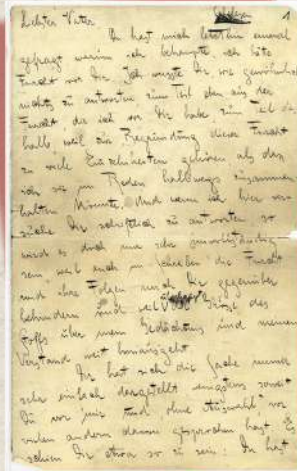 Liebster Vater
Du hast mich letzthin einmal
gefragt, warum ich behaupte, ich hätte
Furcht vor Dir. Ich wusste Dir, wie gewöhnlich,
nichts zu antworten, zum Teil eben aus der
Furcht, die ich vor Dir habe, zum Teil des
halb, weil zur Begründung dieser Furcht
zu viele Einzelnheiten gehören, als dass
ich sie im Reden halbwegs zusammen
halten könnte. Und wenn ich hier ver
suche Dir schriftlich zu antworten, so
wird es doch nur sehr unvollständig
sein, weil auch im Schreiben die Furcht
und ihre Folgen mich Dir gegenüber
behindern und weil Grösse des
Stoffs über mein Gedächtnis und meinen
Verstand weit hinausgeht
Dir hat sich die Sache immer
sehr einfach dargestellt, wenigstens soweit
Du vor mir und, ohne Auswahl, vor
vielen andern davon gesprochen hast. Es
schien Dir etwa so zu sein: Du hast